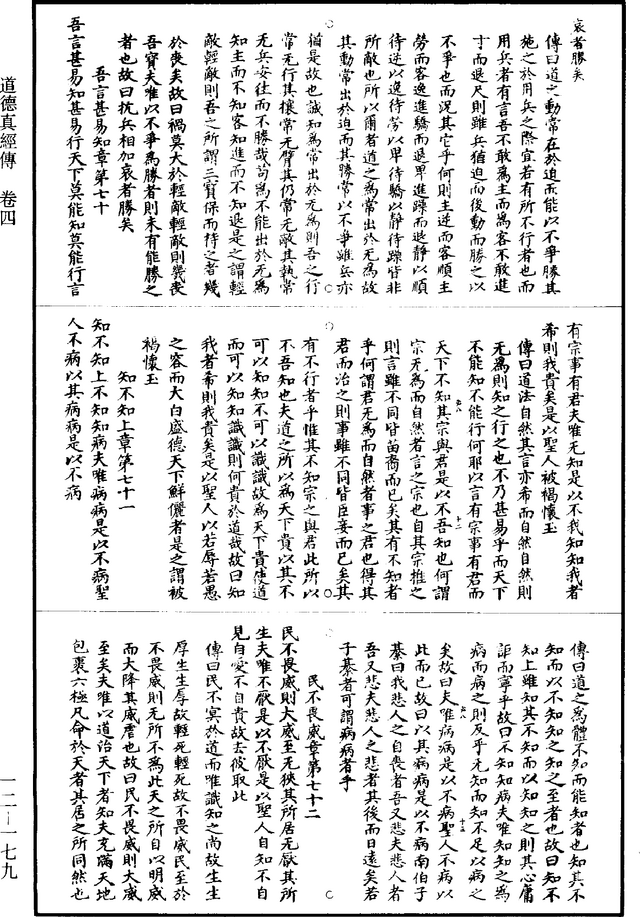 道德真經傳 卷四
哀者勝矣
傳曰道之動常在於迫而能以不爭勝其
施之於用兵之際宜若有所不行者也而
用兵者有言吾不敢爲主而爲客不敢進
寸而退尺則雖兵猶迫而後動而勝之以
不爭也而況其它乎何則主逆而客順主
勞而客逸進驕而退卑進躁而退靜以順
待逆以逸待勞以卑待驕以靜待躁皆非
所敵也所以爾者道之爲常出於无爲故
其動常出於迫而其勝常以不爭雖兵亦
猶是故也誠知爲常出於无爲則吾之行
常无行其攘常无臂其仍常无敵其執常
无兵安往而不勝哉苟爲不能出於无爲
知主而不知客知進而不知退是之謂輕
敵輕敵則吾之所謂三寶保而持之者幾
於喪矣故曰禍莫大於輕敵輕敵則幾喪
吾寶夫唯以不爭爲勝者則未有能勝之
者也故曰抗兵相加哀者勝矣
吾言甚易知章第七十
吾言甚易知甚易行天下莫能知莫能行言
有宗事有君夫唯无知是以不我知知我者
希則我貴矣是以聖人被褐懷玉
傳曰道法自然其言亦希而自然自然則
无爲則知之行之也不乃甚易乎而天下
不能知不能行何耶以言有宗事有君而
天下不知其宗與君是以不吾知也何謂
宗无爲而自然者言之宗也自其宗推之
則言雖不同皆苗裔而已矣其有不知者
乎何謂君无爲而自然者事之君也得其
君而治之則事雖不同皆臣妾而已矣其
有不行者乎惟其不知宗之與君此所以
不吾知也夫道之所以爲天下貴以其不
可以知知不可以識識故爲天下貴使道
而可以知知識識則何貴於道哉故曰知
我者希則我貴矣是以聖人以若辱若愚
之容而大白盛德天下鮮儷者是之謂被
褐懷玉
知不知上章第七十一
知不知上不知知病夫唯病病是以不病聖
人不病以其病病是以不病
傳曰道之爲體不知而能知者也知其不
知而以不知知之知之至者也故曰知不
知上雖知其不知而以知知之則其心庸
詎而寧乎故曰不知知病夫唯知知之爲
病而病之則反乎无知而知不足以病之
矣故曰夫唯病病是以不病聖人不病以
此而已故曰以其病病是以不病南伯子
綦曰我悲人之自喪者吾又悲夫悲人者
吾又悲夫悲人之悲者其後而日遠矣若
子綦者可謂病病者乎
民不畏威章第七十二
民不畏威則大威至无狹其所居无厭其所
生夫唯不厭是以不厭是以聖人自知不自
見自愛不自貴故去彼取此
傳曰民不冥於道而唯識知之尚故生生
厚生生厚故輕死輕死故不畏威民至於
不畏威則无所不爲此天之所自以明威
而大降其威虐也故曰民不畏威則大威
至矣夫唯以道治天下者知夫充滿天地
包裹六極凡命於天者其居之所同然也
一二—一七九